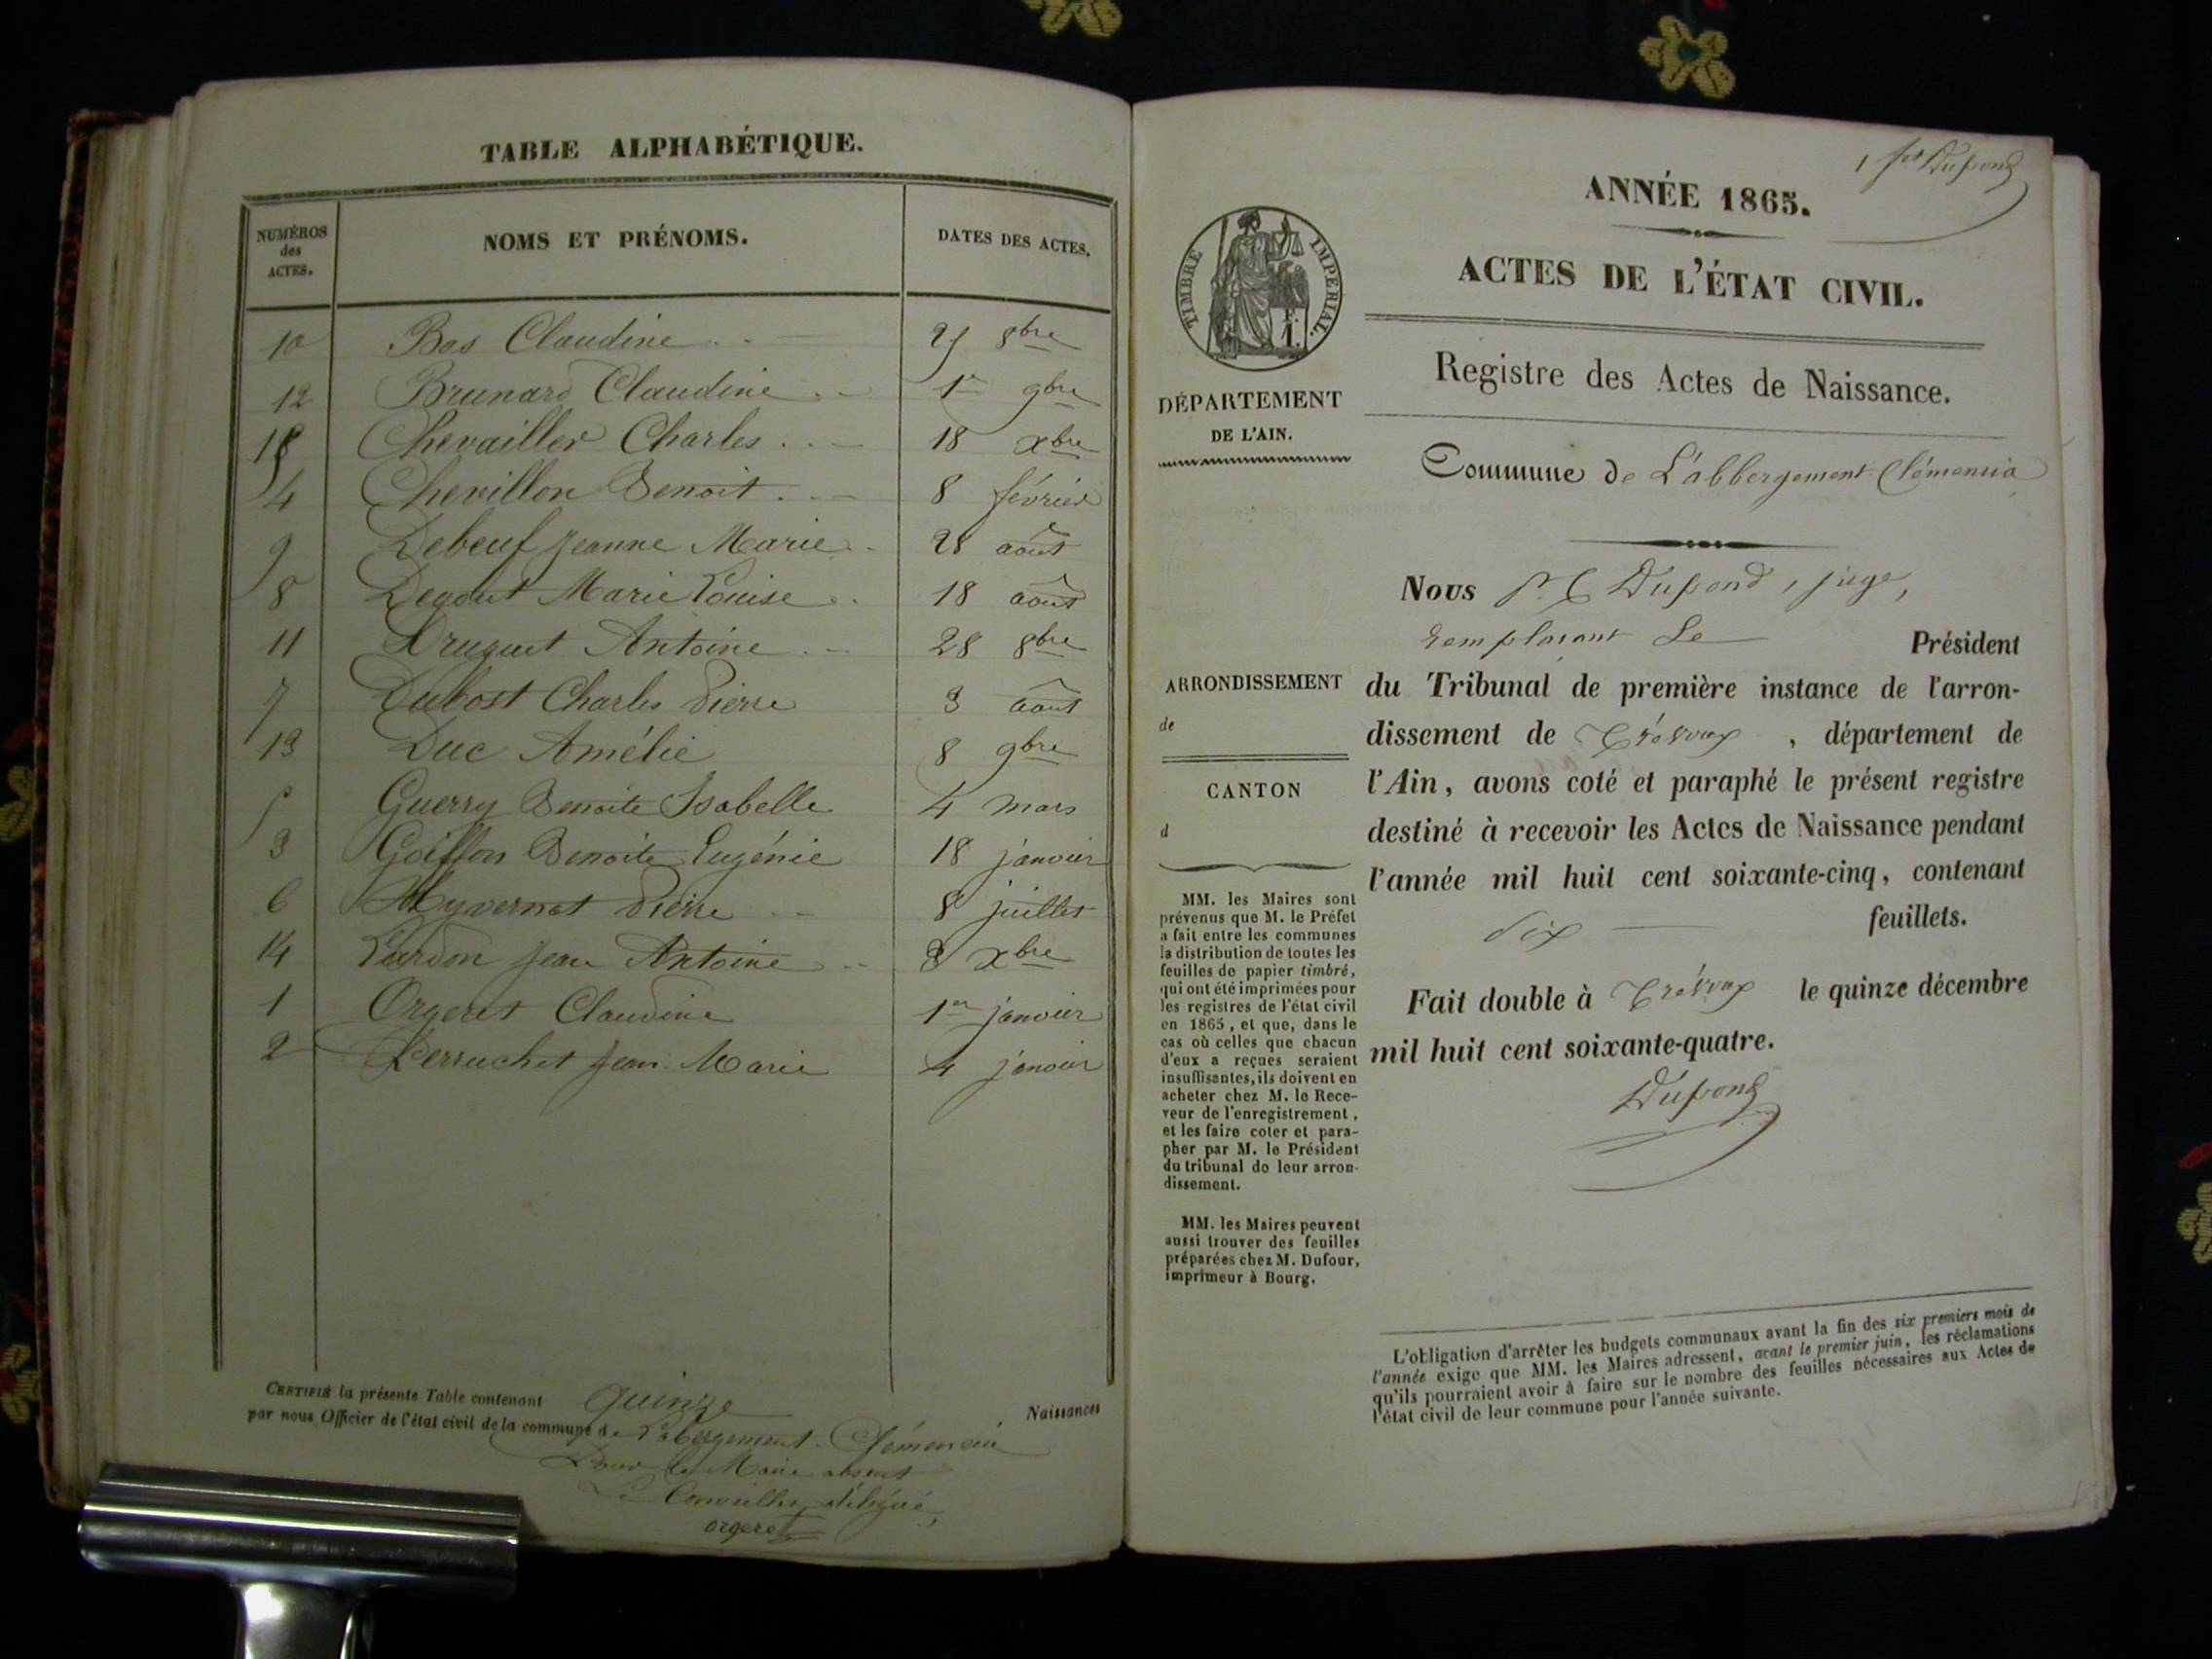 TABLE ALPHABÉTIQUE.
NUMÉROS des ACTES. NOMS ET PRÉNOMS. DATES DES ACTES.
10 Bas Claudine 25 8bre
12 Brunard Claudine 1er 9bre
15 Chevailler Charles 18 xbre
4 Chevillon Benoit 8 février
9 Debeuf Jeanne Marie 28 août
8 Degout Marie Louise 18 août
11 Druguet Antoine 28 8bre
7 Dubost Charles Pierre 3 août
13 Duc Amélie 8 9bre
5 Guerry Benoite Isabelle 4 mars
3 Goiffon Benoite Eugénie 18 janvier
6 Myvernat Pierre 8 juillet
14 Lardon Jean Antoine 3 xbre
1 Orgeret Claudine 1er janvier
2 Perruchet Jean Marie 4 janvier
CERTIFIÉ la présente Table contenant quinze Naissances
par nous Officier de l'état civil de la commune de L'abergement-Clémencia
Pour le Maire absent
Le Conseiller délégué,
orgeret
1 fet Dupond
ANNÉE 1865.
ACTES DE L'ÉTAT CIVIL.
Registre des Actes de Naissance.
Commune de L'abbergement-Clémencia
TIMBRE IMPÉRIAL.
DÉPARTEMENT
DE L'AIN.
ARRONDISSEMENT
de
CANTON
d
MM. les Maires sont
prévenus que M. le Préfet
a fait entre les communes
la distribution de toutes les
feuilles de papier timbré,
qui ont été imprimées pour
les registres de l'état civil
en 1865, et que, dans le
cas où celles que chacun
d'eux a reçues seraient
insuffisantes, ils doivent en
acheter chez M. le Rece-
veur de l'enregistrement,
et les faire coter et para-
pher par M. le Président
du tribunal de leur arron-
dissement.
MM. les Maires peuvent
aussi trouver des feuilles
préparées chez M. Dufour,
imprimeur à Bourg.
Nous Dupond, juge,
remplaçant le Président
du Tribunal de première instance de l'arron-
dissement de Trévoux, département de
l'Ain, avons coté et paraphé le présent registre
destiné à recevoir les Actes de Naissance pendant
l'année mil huit cent soixante-cinq, contenant
six feuillets.
Fait double à Trévoux le quinze décembre
mil huit cent soixante-quatre.
Dupond
L'obligation d'arrêter les budgets communaux avant la fin des six premiers mois de
l'année exige que MM. les Maires adressent, avant le premier juin, les réclamations
qu'ils pourraient avoir à faire sur le nombre des feuilles nécessaires aux Actes de
l'état civil de leur commune pour l'année suivante.